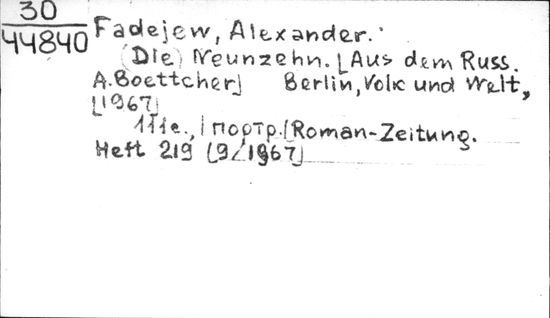 30
44840
Fadejew, Alexander.
(Die) Neunzehn. [Aus dem Russ.
A.Boettcher] Berlin, Volk und Welt,
[1967]
111c., 1 портр. (Roman-Zeitung.
Heft 219 [9/1967]